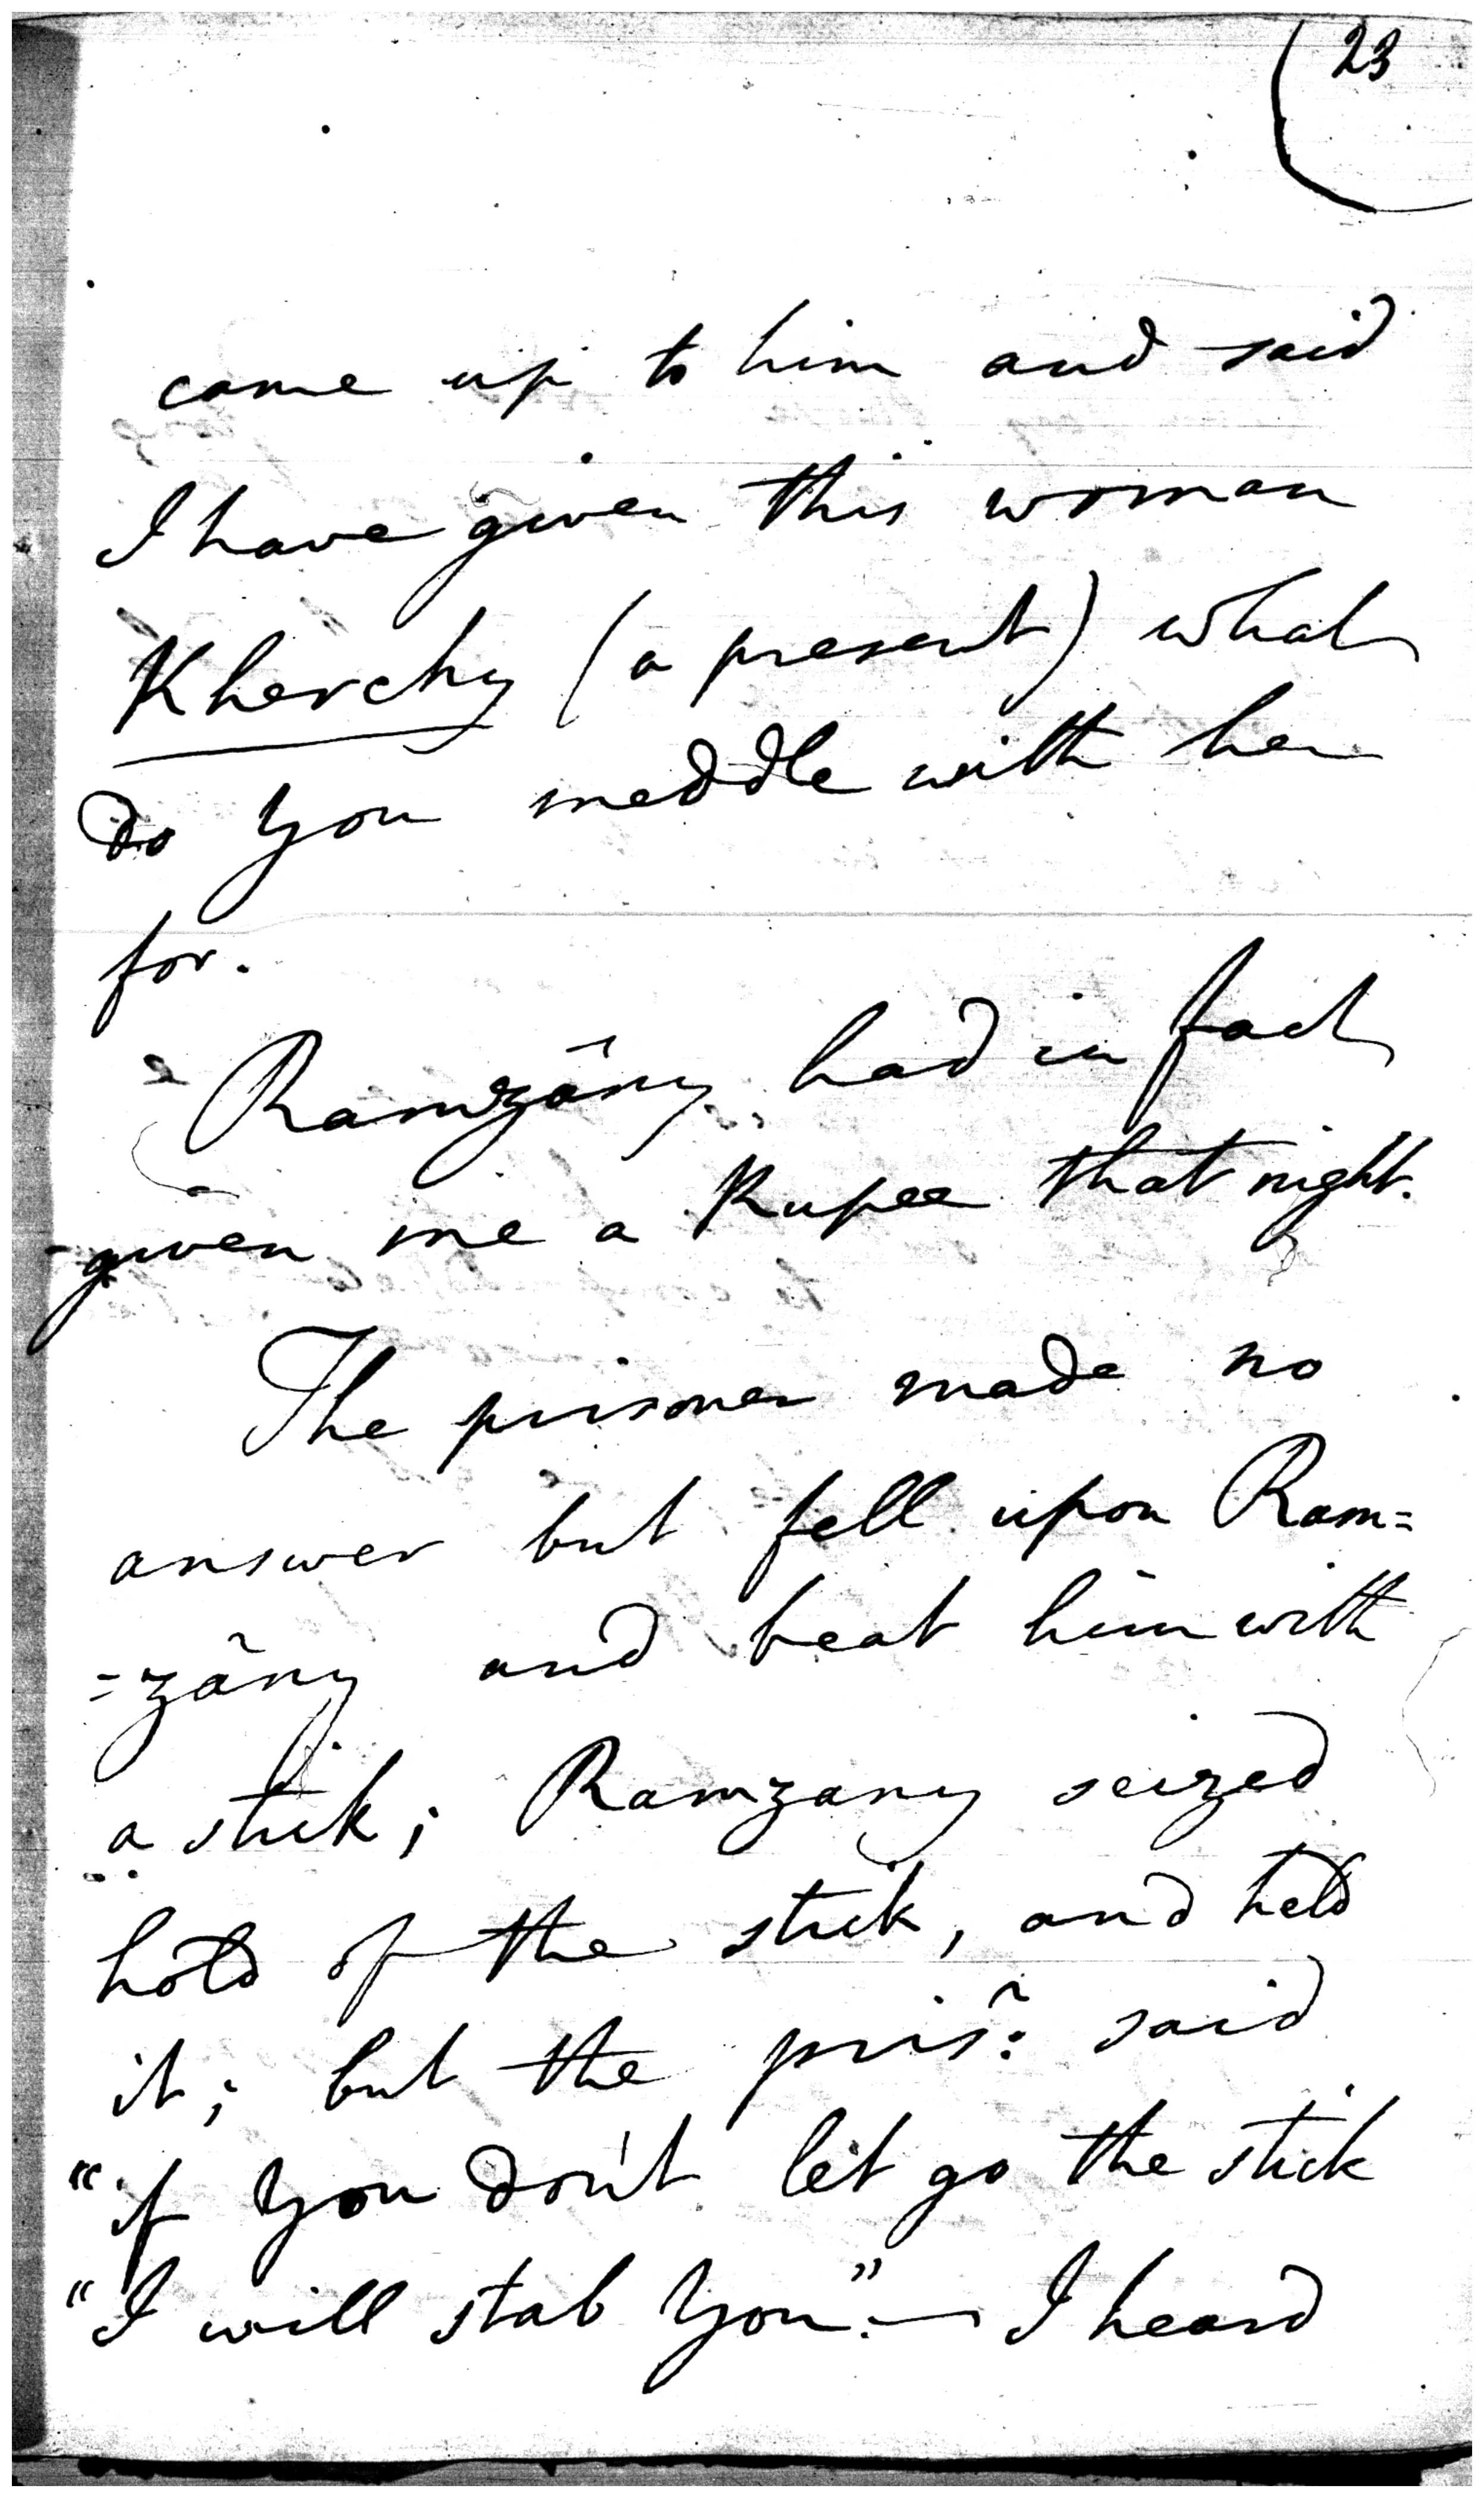 23
came up to him and said
I have given this woman
Kherchy (a present) what
do you meddle with her
for.
Ramzâny had in fact
given me a Rupee that night.
The prisoner made no
answer but fell upon Ram=
=zâny and beat him with
a stick; Ramzany seized
hold of the stick, and held
it; but the prisr. said
"if you don't let go the stick
"I will stab you". — I heard